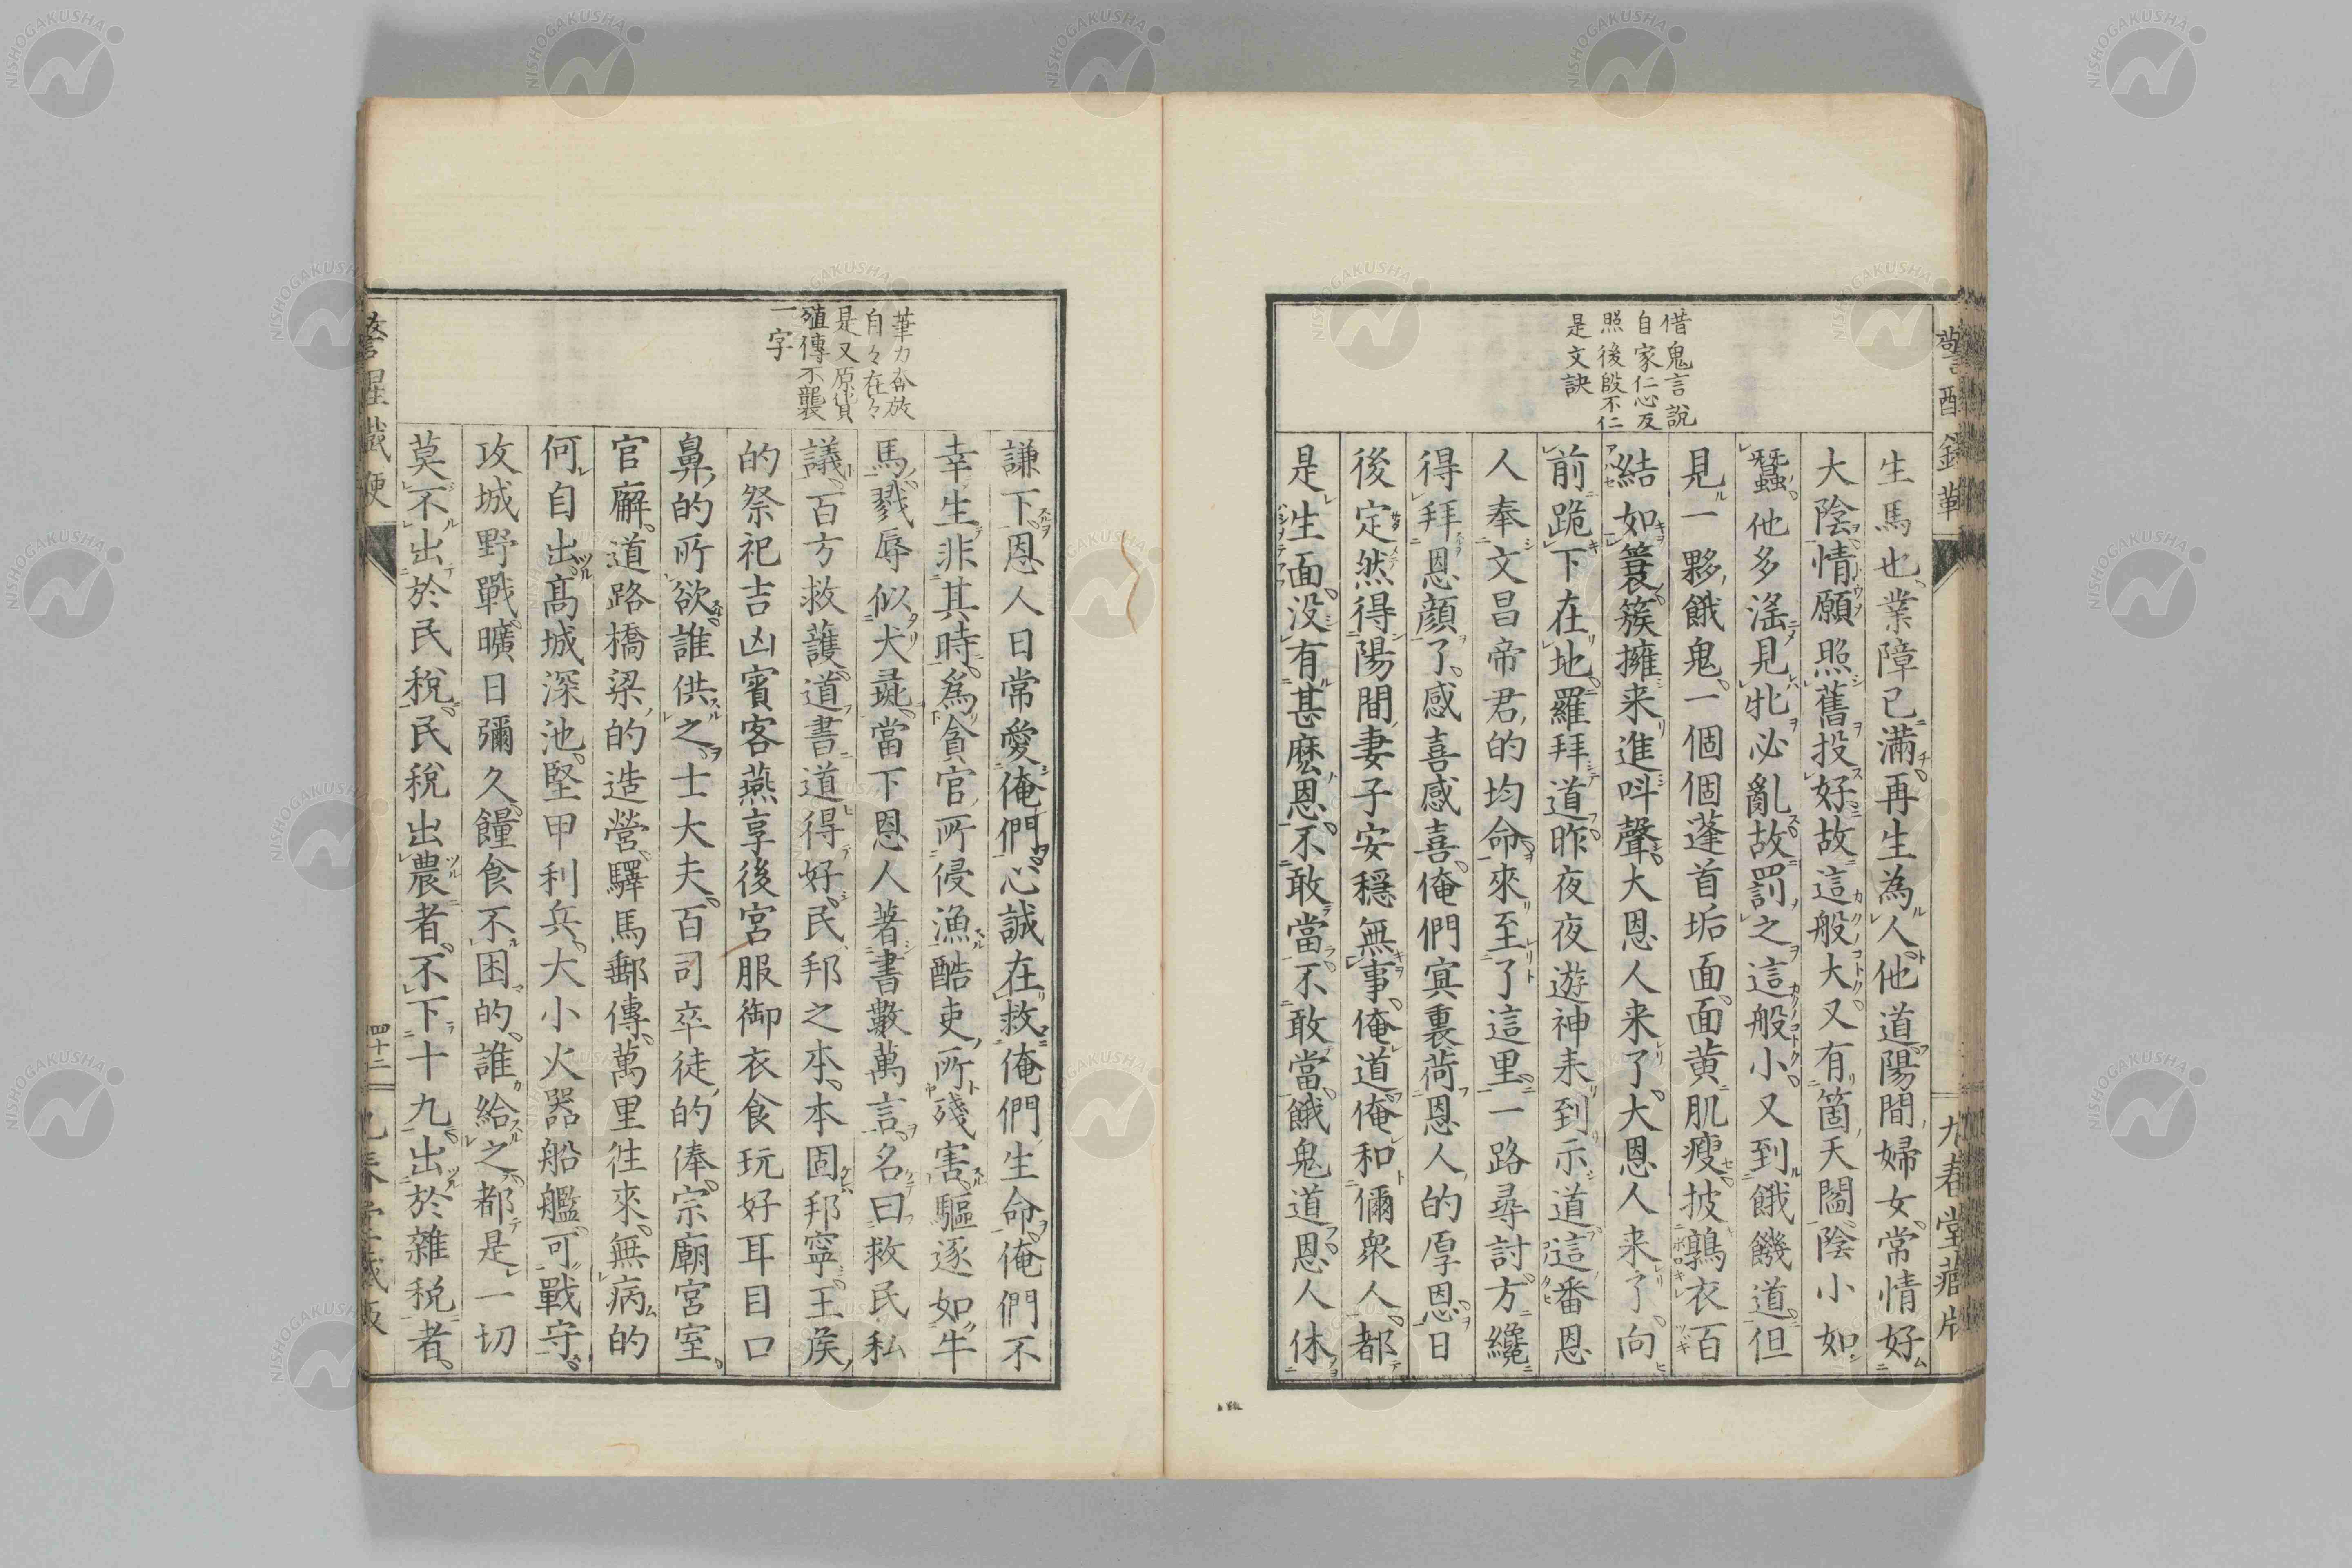 借鬼言說
自家仁心反
照後段不仁
是文訣
生馬也業障已滿再生為人他道陽間婦女常情好
大陰情願照舊投好故這般大又有箇天閹陰小如
蠶他多滛見牝必亂故罰之這般小又到餓饑道但
見一夥餓鬼一個個蓬首垢面面黃肌瘦披鶉衣百
結如簑簇擁来進呌聲大恩人来了大恩人来了向
前跪下在地羅拜道昨夜夜遊神来到示道這番恩
人奉文昌帝君的均命來至了這里一路尋討方纔
得拜恩顔了感喜感喜俺們寘裏荷恩人的厚恩日
後定然得陽間妻子安穏無事俺道俺和儞衆人都
是生面没有甚麽恩不敢當不敢當餓鬼道恩人休
警醒鐵鞭
九春堂藏版
自々在々
是又原貨
殖傳不襲
一字
謙下恩人日常愛俺們心誠在救俺們生命俺們不
幸生非其時為貪官所侵漁酷吏所殘害驅逐如牛
馬戮辱似犬彘當下恩人著書數萬言名曰救民私
議百方救護道書道得好民邦之本本固邦寧王侯
的祭祀吉凶賓客燕享後宮服御衣食玩好耳目口
鼻的所欲誰供之士大夫百司卒徒的俸宗廟宮室
官廨道路橋梁的造營驛馬郵傳萬里徃來無病的
何自出高城深池堅甲利兵大小火器船艦可戰守
攻城野戰曠日彌久饉食不困的誰給之都是一切
莫不出於民稅民稅出農者不下十九出於雜税者
四十二